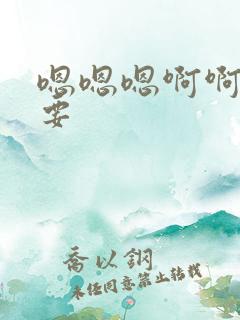 嗯嗯嗯啊啊
要
乔以钢
未经同意禁止转载